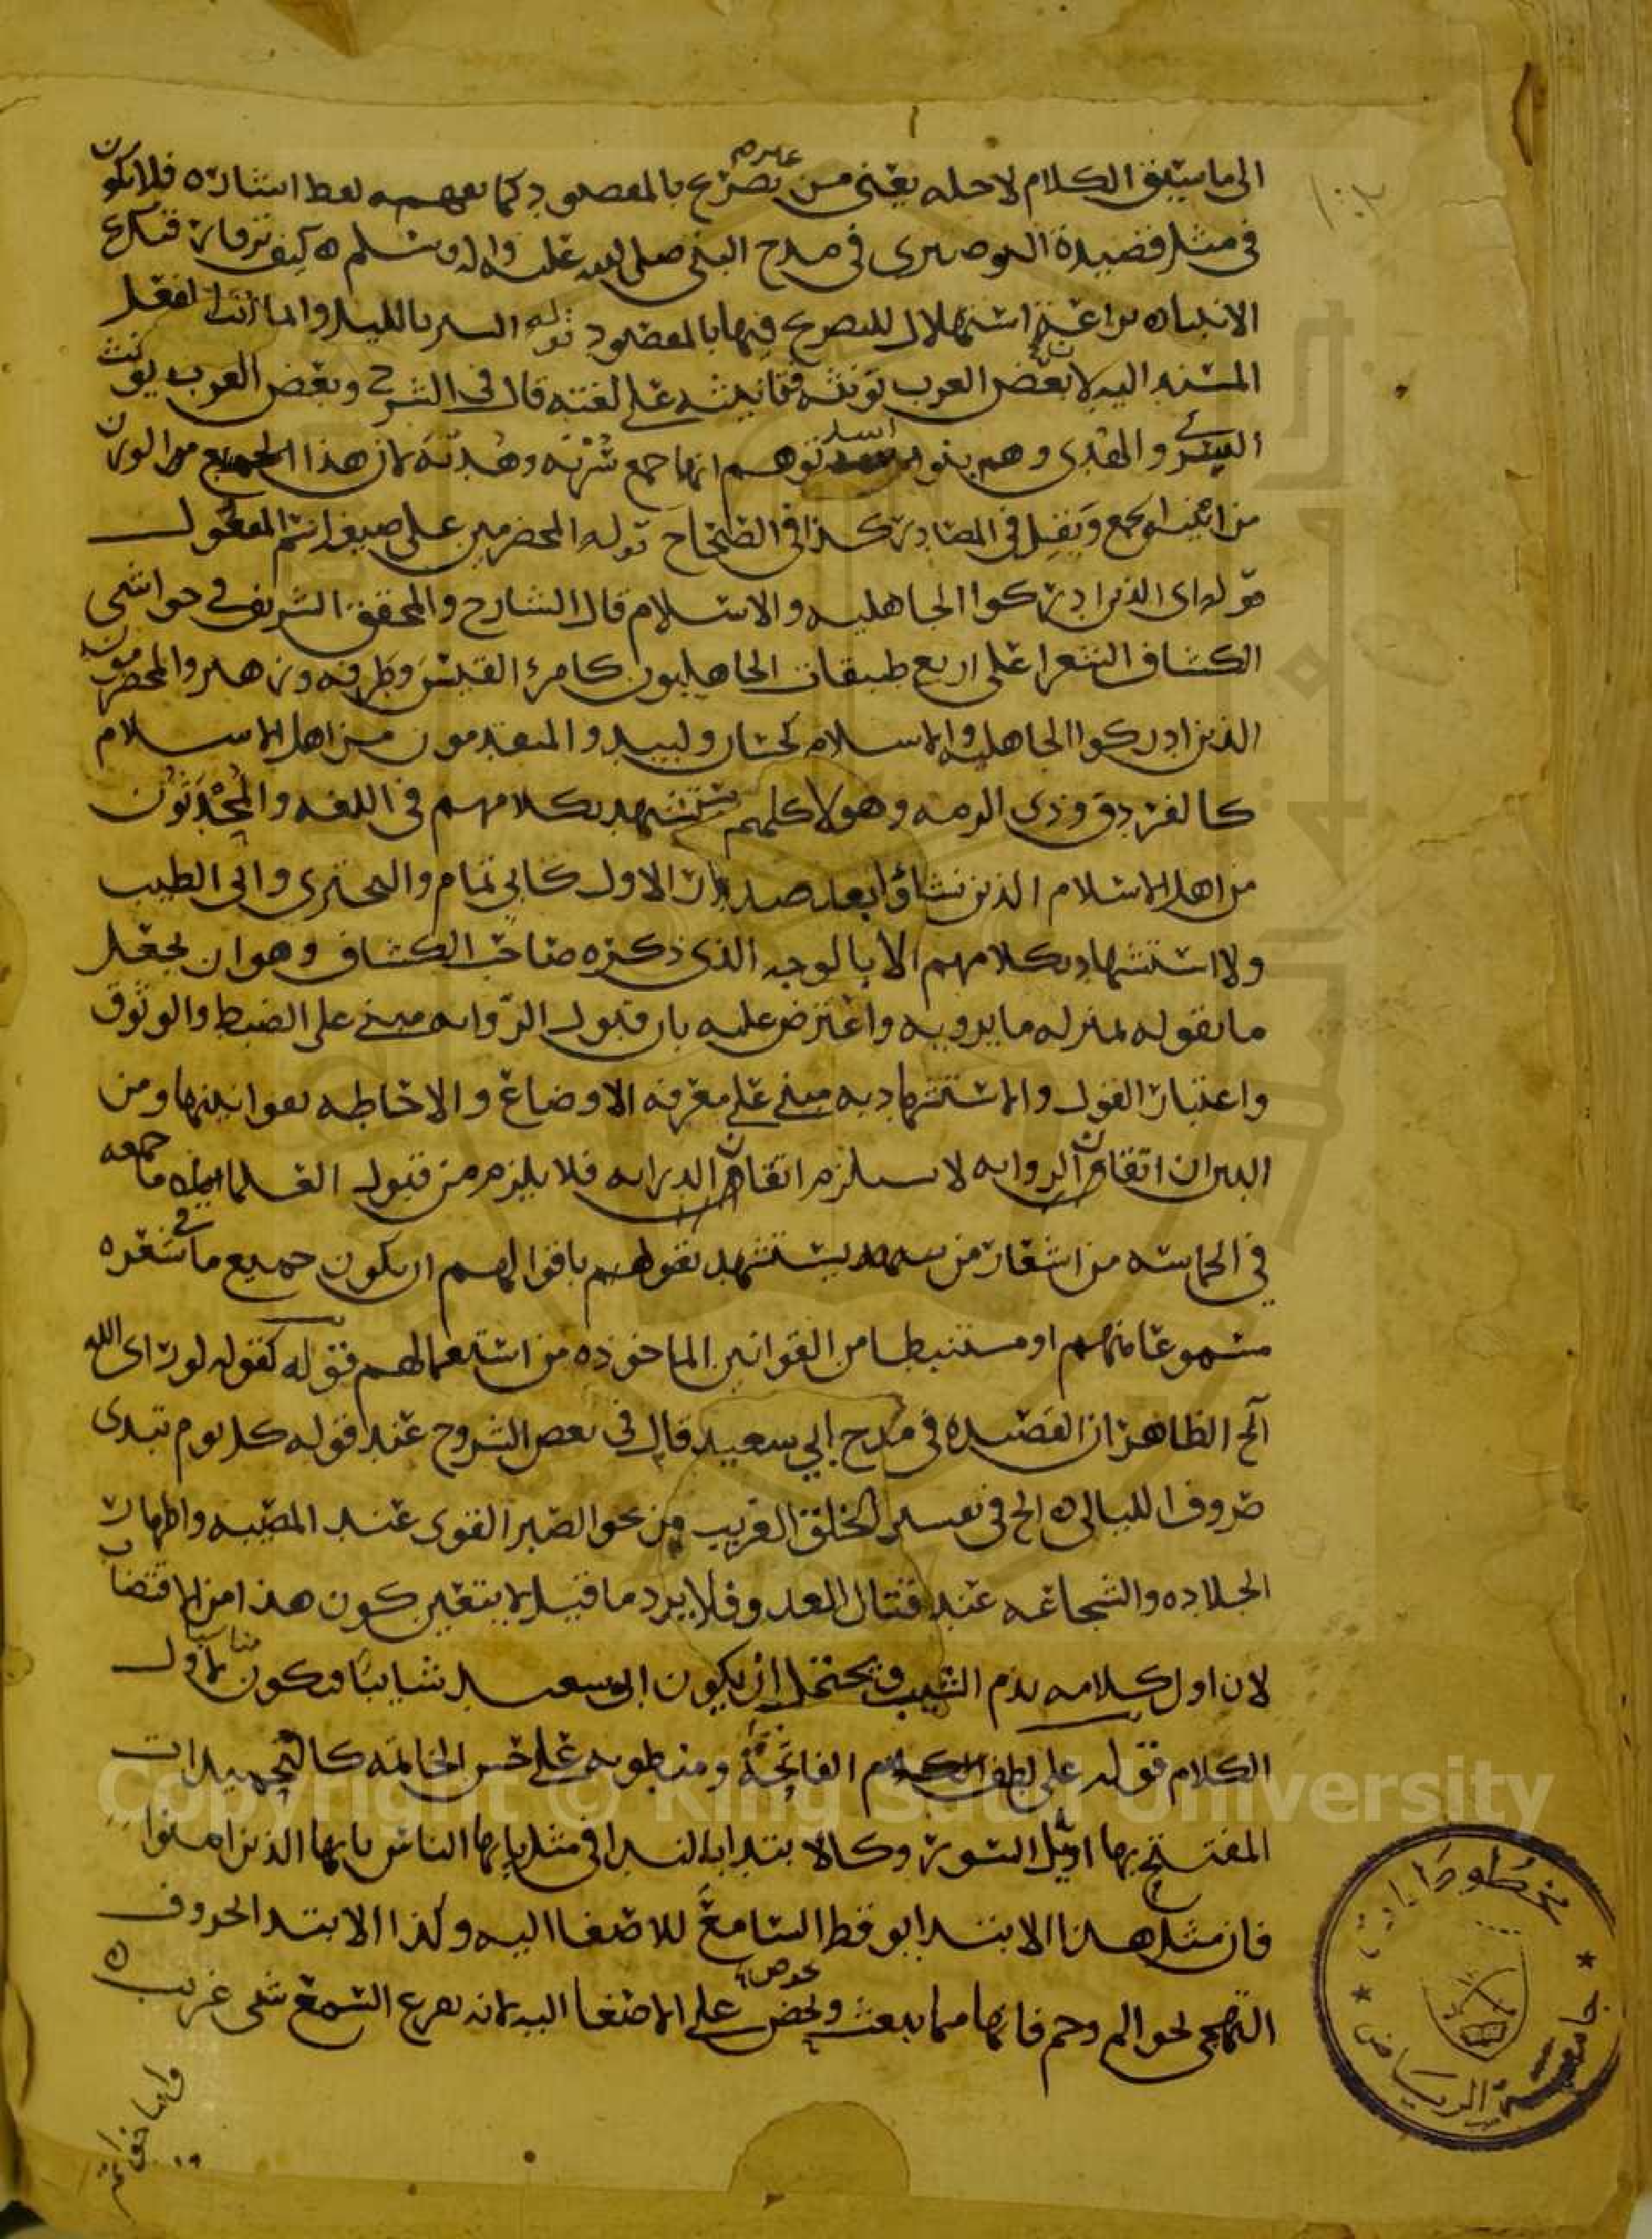 الى ما سيق الكلام لاجله يعني من غير تصريح بالمقصود كما يفهمه لفظ اشارة فلا يكون
في مثل قصيدة البوصيري في مدح النبي صلى الله عليه واله وسلم كيف ترقا رقيك
الانبياء براعة استهلال للتصريح فيها بالمقصود قوله السر بالليل وانما انث الفعل
المسند اليه لان بعض العرب تونثه فتانيثه على لغته قال في الشرح وبعض العرب يونث
السرى والهدى وهم بنو اسد توهم انها جمع سُرْيَه وهُدْيَه لان هذا الوزن
من ابنيه الجمع ويقل في المصادر كذا في الصحاح قوله المخضرمين على صيغه اسم المفعول
قوله اي الذين ادركوا الجاهليه والاسلام قال الشارح والمحقق الشريف في حواشي
الكشاف الشعرا على اربع طبقات الجاهليون كامرئ القيس وطرفه وزهير والمخضرمون
الذين ادركوا الجاهليه والاسلام كحسان ولبيد والمتقدمون من اهل الاسلام
كالفرزدق وذي الرمه وهولا كلهم يستشهد بكلامهم في اللغه والمُحْدَثُون
من اهل الاسلام الذين نشاؤا بعد الصدر الاول كابي تمام والبحتري وابي الطيب
ولا استشهاد بكلامهم الا بالوجه الذي ذكره صاحب الكشاف وهو ان يجعل
ما يقوله بمنزله ما يرويه واعترض عليه بان قبول الروايه مبني على الضبط والوثوق
واعتبار القول والاستشهاد به مبني على معرفه الاوضاع والاحاطه بقوانينها ومن
البين ان اتقان الروايه لا يستلزم اتقان الدرايه فلا يلزم من قبول العلما ما جمعه
في الحماسه من اشعار من يستشهد باقوالهم ان يكون جميع ما في شعره
مسموعا منهم او مستنبطا من القوانين الماخوذه من استعمالهم قوله كقوله لو راى الله
الخ الظاهر ان القصيده في مدح ابي سعيد قال في بعض الشروح عند قوله كل يوم تبدي
صروف الليالي الخ في تفسير الخلق الغريب من نحو الصبر القوي عند المصيبه واظهار
الجلاده والشجاعه عند قتال العدو فلا يرد ما قيل لا يتعين كون هذا من الاقتضاب
لان اول كلامه بذم الشيب ويحتمل ان يكون ابو سعيد شايبا فيكون مناسبا لاول
الكلام قوله على لطف الفاتحة ومنطويه على حسن الخاتمه كالتحميدات
المفتتح بها اوايل السور وكالابتدا بالندا في مثل يا ايها الناس يا ايها الذين امنوا
فان مثل هذا الابتدا يوقظ السامع للاصغا اليه وكذا الابتدا بحروف
التهجي نحو الم وحم فانها مما يبعث ويحض على الاصغا اليه لانه يقرع السمع شي غريب
واما خواتم
Copyright © King Saud University
مخطوطات
جامعة الرياض